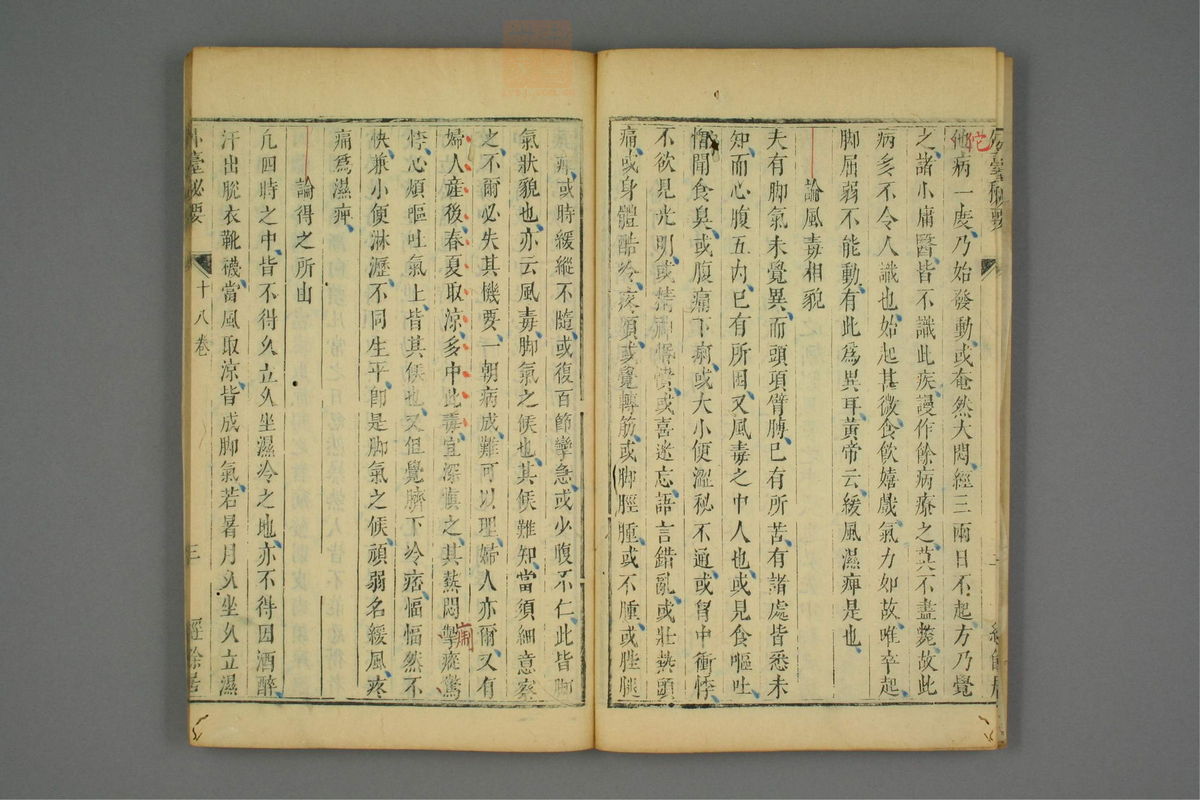 他病一度乃始發動或奄然大悶經三兩日不起方乃覺
之諸小庸醫皆不識此疾謾作餘病療之莫不盡斃故此
病多不令人識也始起甚微食飲嬉戲氣力如故唯卒起
脚屈弱不能動有此為異耳黃帝云緩風濕痺是也
論風毒相貌
夫有脚氣未覺異而頭項臂膊已有所苦有諸處皆悉未
知而心腹五內已有所困又風毒之中人也或見食嘔吐
憎聞食臭或腹痛下痢或大小便澀秘不通或胷中衝悸
不欲見光明或精神惛憒或喜迷忘語言錯亂或壯熱頭
痛或身體酷冷疼煩或覺轉筋或脚脛腫或不腫或䏶腿
頑痹或時緩縱不隨或復百節攣急或少腹不仁此皆脚
氣狀貌也亦云風毒脚氣之候也其候難知當須細意察
之不爾必失其機要一朝病成難可以理婦人亦爾又有
婦人產後春夏取涼多中此毒宜深慎之其熱悶掣瘲驚
悸心煩嘔吐氣上皆其候也又但覺臍下冷痞愊愊然不
快兼小便淋瀝不同生平卽是脚氣之候頑弱名緩風疼
痛為濕痺
論得之所由
凡四時之中皆不得久立久坐濕冷之地亦不得因酒醉
汗出脫衣靴襪當風取涼皆成脚氣若暑月久坐久立濕
外臺秘要 十八卷 三 經餘居